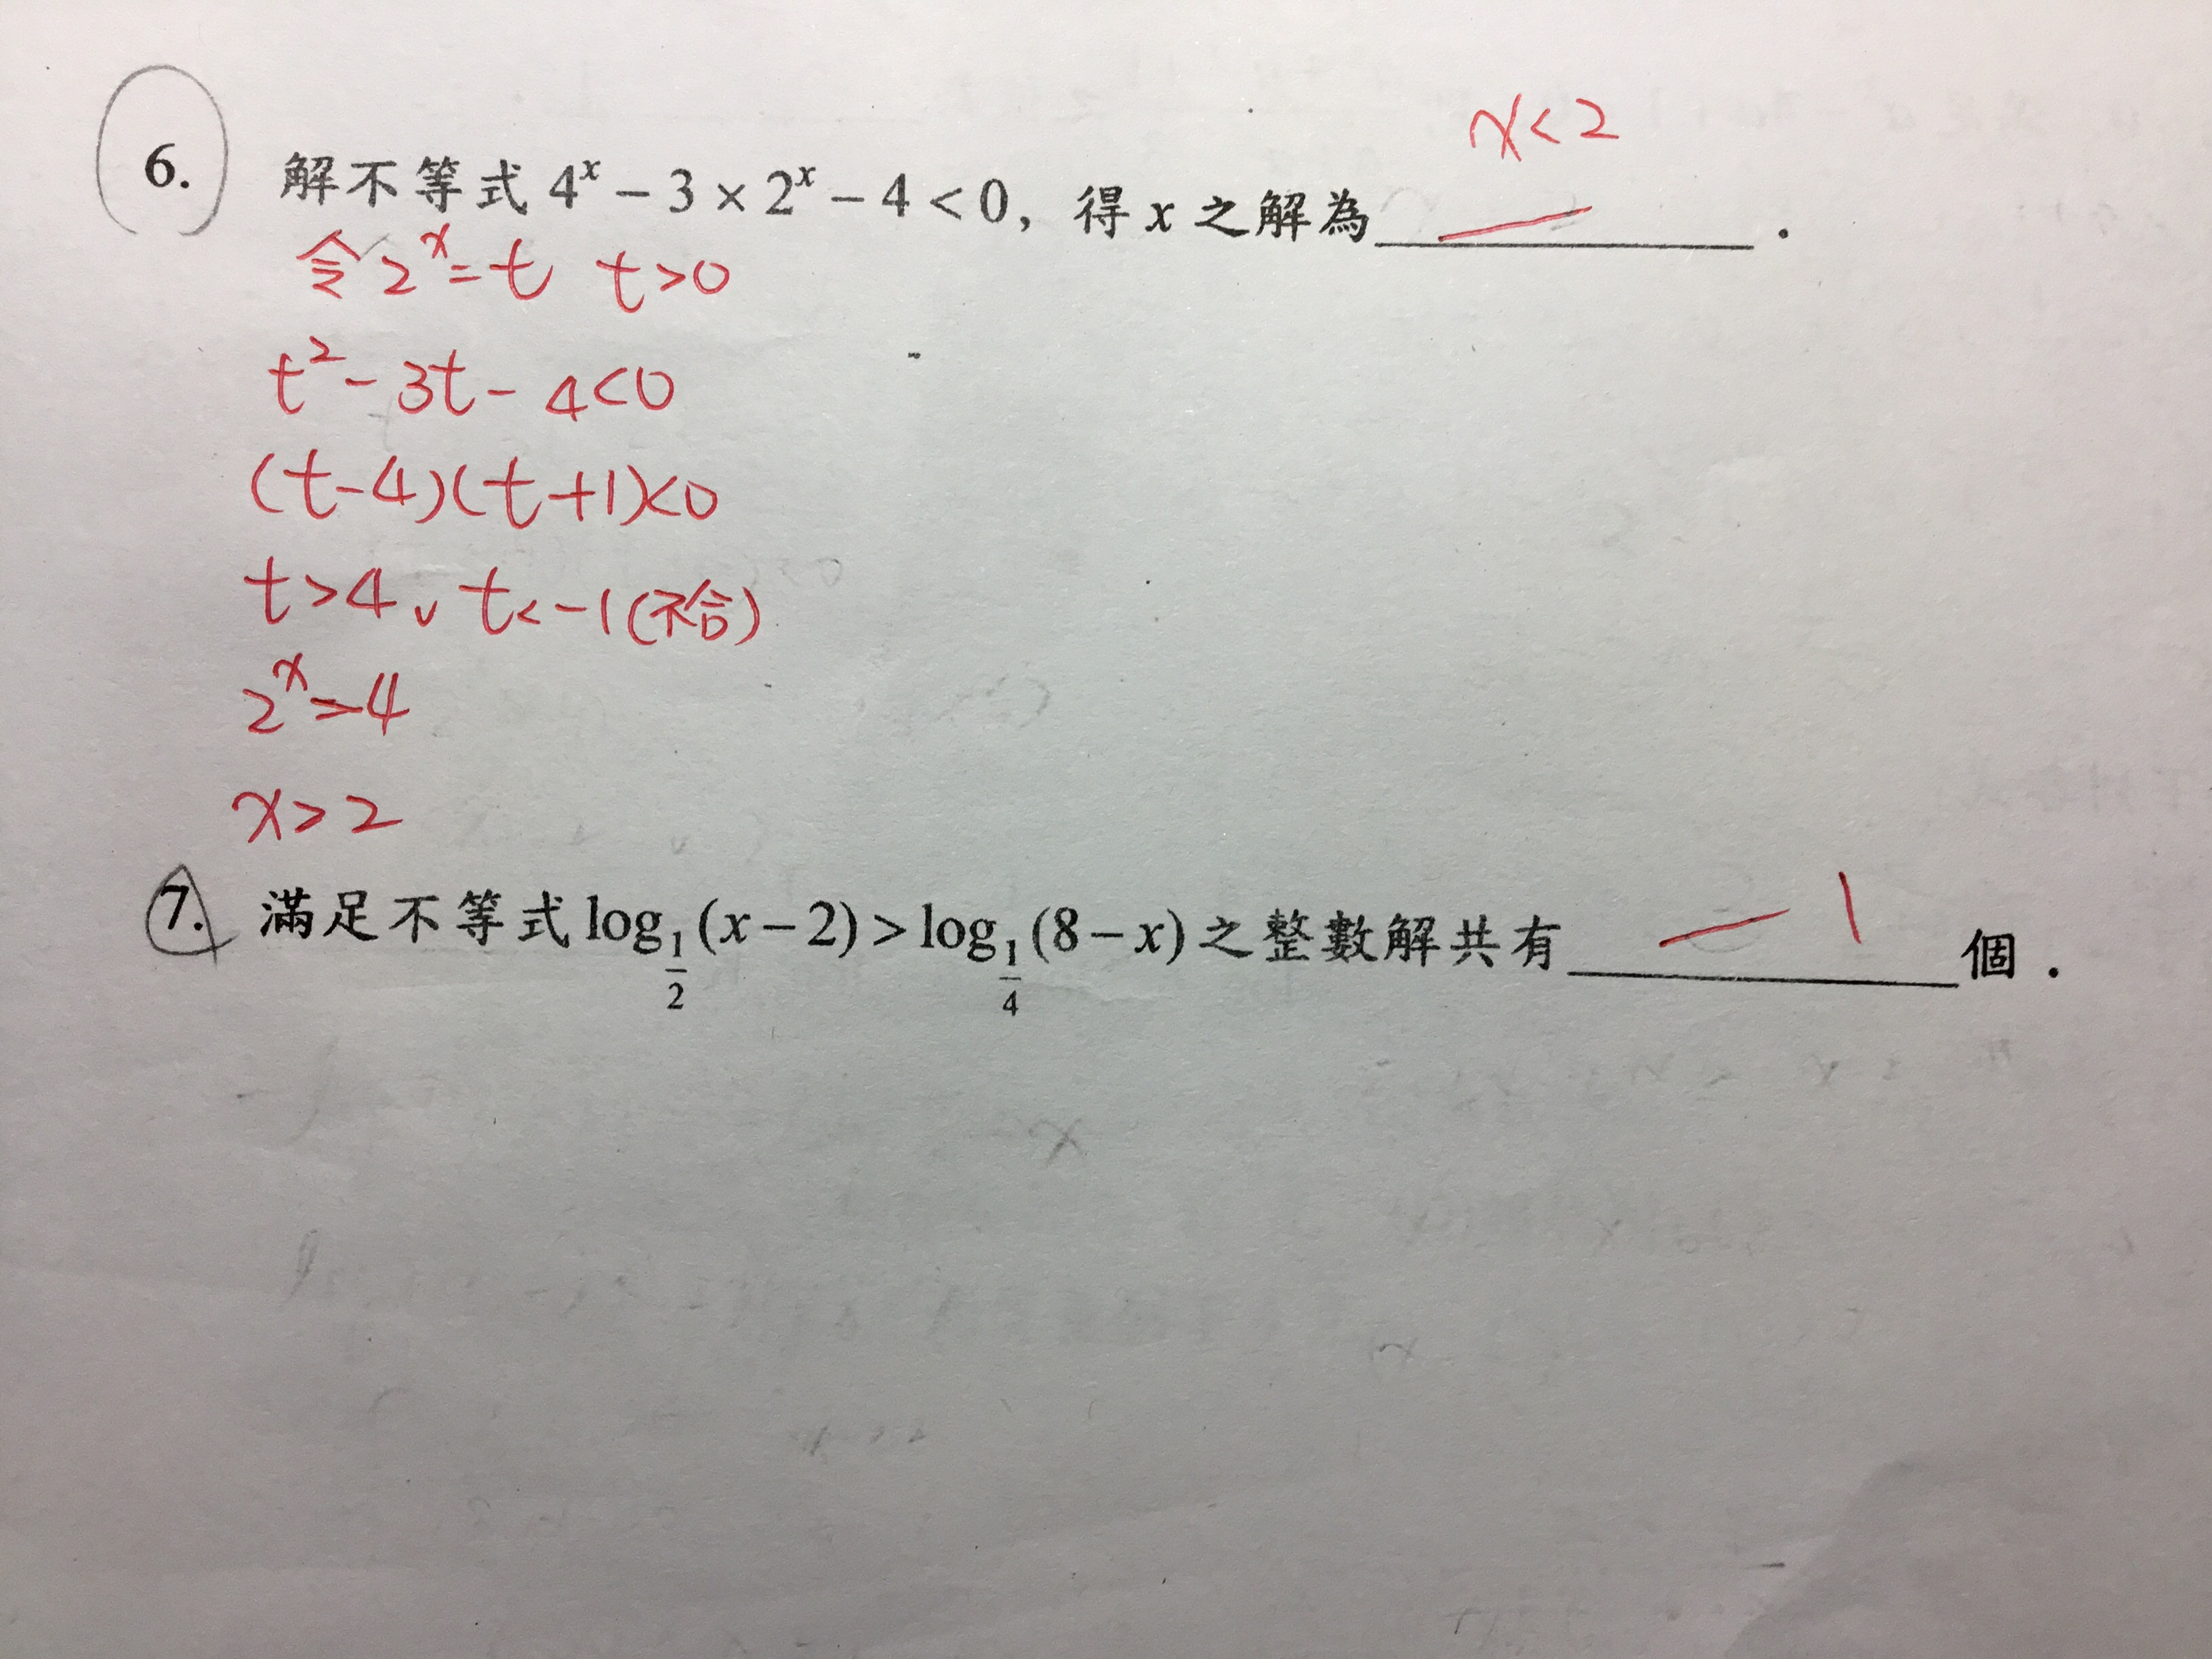 x<2
6. 解不等式 4^x − 3 × 2^x − 4 < 0，得 x 之解為__________．
令 2^x = t t>0
t^2 - 3t - 4<0
(t-4)(t+1)<0
t>4 ∨ t<-1(不合)
2^x>4
x>2
7. 滿足不等式 log_{1/2}(x−2) > log_{1/4}(8−x) 之整數解共有 1 個．